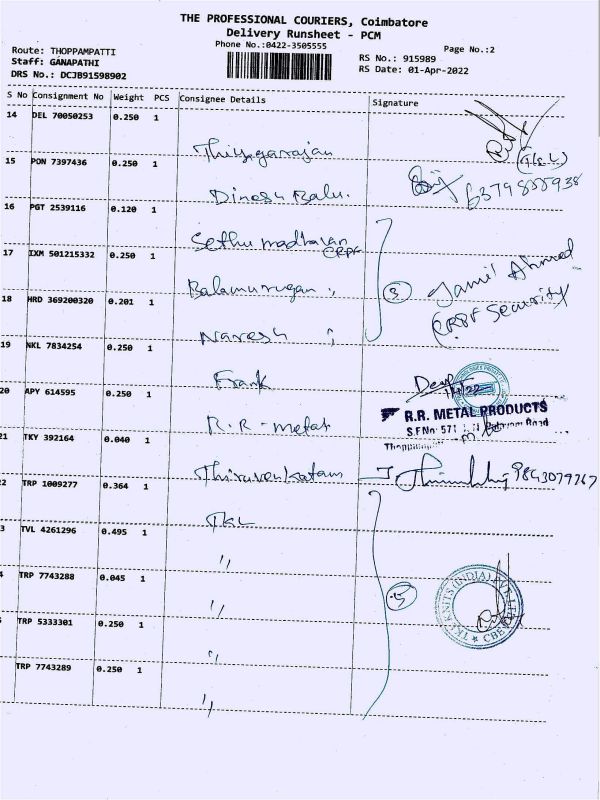 THE PROFESSIONAL COURIERS, Coimbatore
Delivery Runsheet - PCM
Phone No.:0422-3505555
Page No.:2
Route: THOPPAMPATTI
Staff: GANAPATHI
DRS No.: DCJB91598902
RS No.: 915989
RS Date: 01-Apr-2022
S No Consignment No Weight PCS Consignee Details Signature
14 DEL 70050253 0.250 1
Thiyagarajan
(TKL)
15 PON 7397436 0.250 1
Dinesh Balu.
16 PGT 2539116 0.120 1
Sethu madhavan
CRPF
17 IXM 501215332 0.250 1
Balamurugan ,,
3 Jamil Ahmed
CRPF Security
18 HRD 369200320 0.201 1
Naresh ,,
19 NKL 7834254 0.250 1
Frank
20 APY 614595 0.250 1
R.R - metal
R.R. METAL PRODUCTS
S.F.No. 571
21 TKY 392164 0.040 1
Thiruvenkatam
9843079767
2 TRP 1009277 0.364 1
TKL
3 TVL 4261296 0.495 1
,,
4 TRP 7743288 0.045 1
,,
5
TKL KNITS (INDIA) PVT. LTD. ★ CBE
TRP 5333301 0.250 1
,,
TRP 7743289 0.250 1
,,